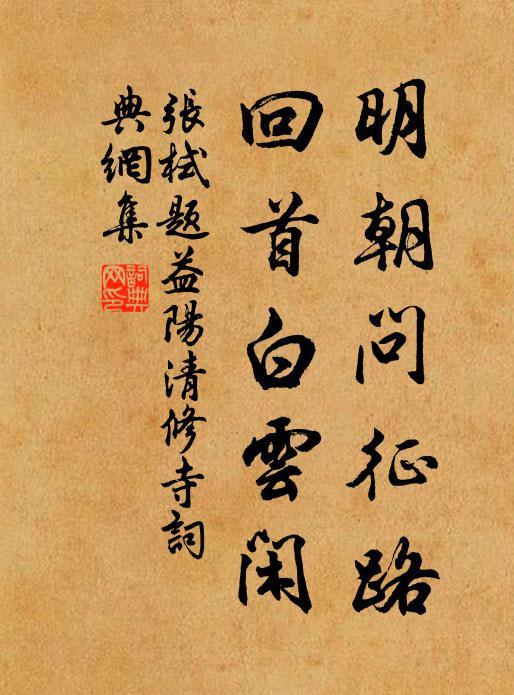 明朝問征路
回首白雲閑
張栻題益陽清修寺詞
典網集
詞典网印